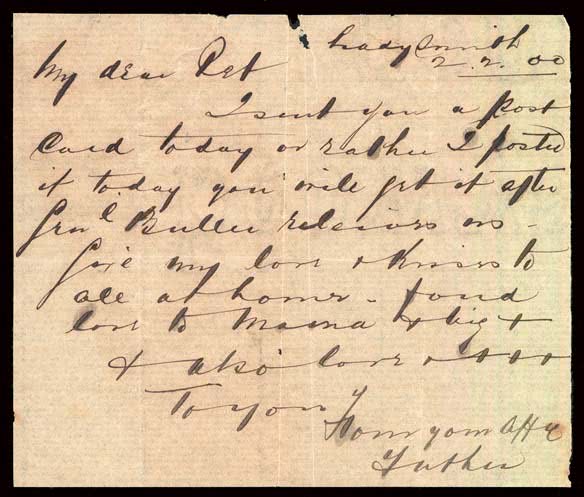 Ladysmith
2.2.00
My dear Pet
I sent you a post
Card today or rather I posted
it today you will get it after
Genl Buller relieves us -
Give my love & Kisses to
all at home - fond
love to Mama & big +
+ also love & + + +
To you
From your Affte
Father